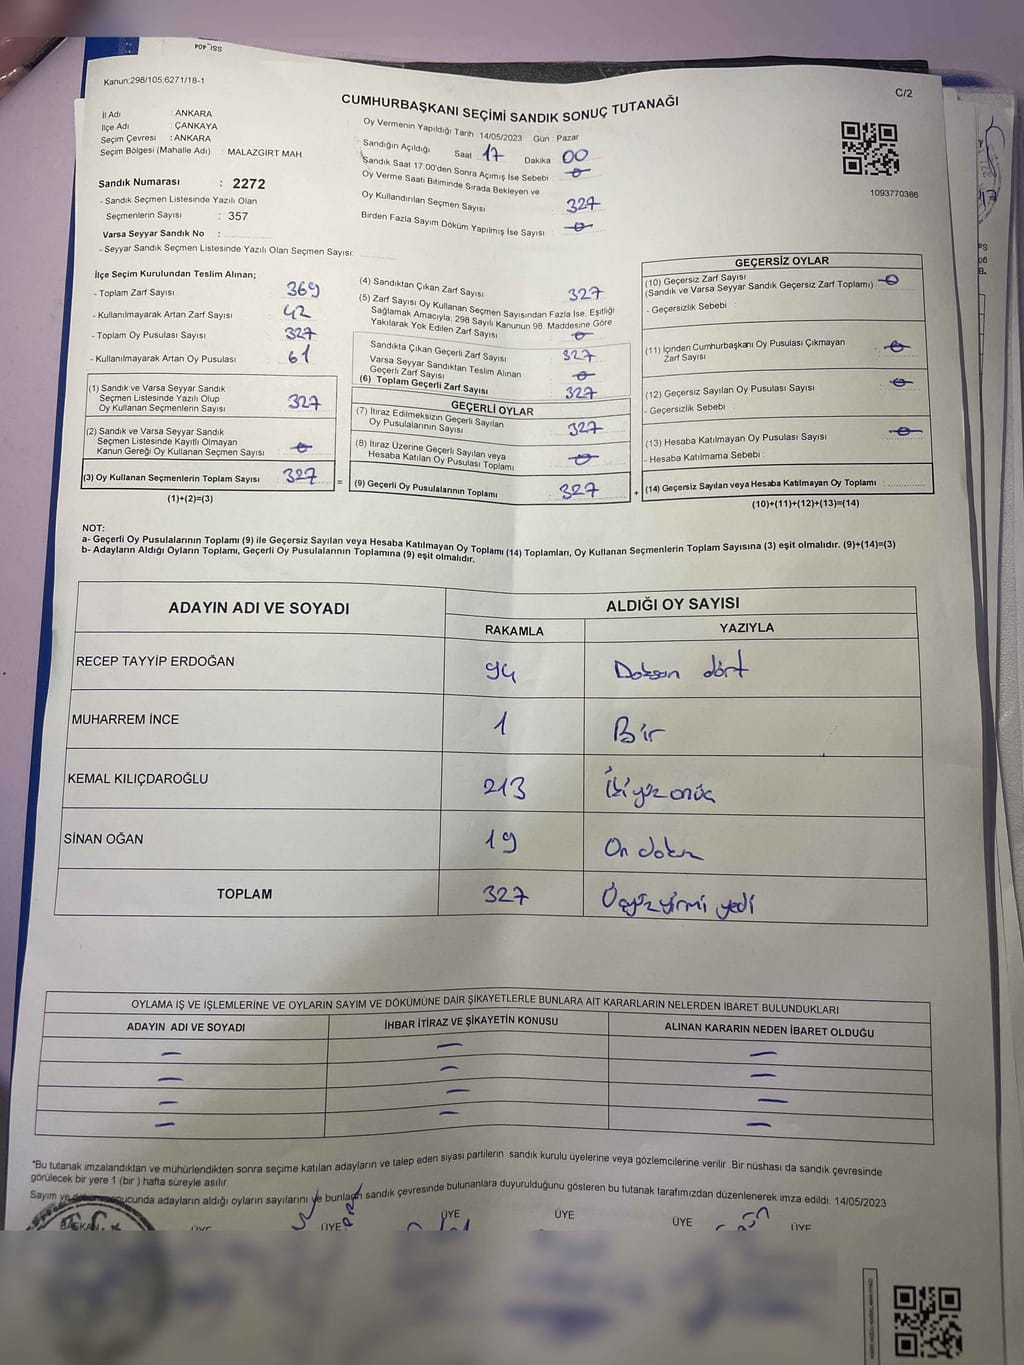 Kanun:298/105,6271/18-1
C/2
CUMHURBAŞKANI SEÇİMİ SANDIK SONUÇ TUTANAĞI
İl Adı : ANKARA
İlçe Adı : ÇANKAYA
Seçim Çevresi : ANKARA
Seçim Bölgesi (Mahalle Adı) : MALAZGİRT MAH
Sandık Numarası : 2272
- Sandık Seçmen Listesinde Yazılı Olan
Seçmenlerin Sayısı : 357
Varsa Seyyar Sandık No :
- Seyyar Sandık Seçmen Listesinde Yazılı Olan Seçmen Sayısı:
Oy Vermenin Yapıldığı Tarih :14/05/2023 Gün : Pazar
Sandığın Açıldığı Saat 17 Dakika 00
Sandık Saat 17.00'den Sonra Açımış İse Sebebi : 0
Oy Verme Saati Bitiminde Sırada Bekleyen ve
Oy Kullandırılan Seçmen Sayısı : 327
Birden Fazla Sayım Döküm Yapılmış İse Sayısı : 0
1093770386
İlçe Seçim Kurulundan Teslim Alınan;
- Toplam Zarf Sayısı : 369
- Kullanılmayarak Artan Zarf Sayısı : 42
- Toplam Oy Pusulası Sayısı : 327
- Kullanılmayarak Artan Oy Pusulası : 61
(1) Sandık ve Varsa Seyyar Sandık
Seçmen Listesinde Yazılı Olup
Oy Kullanan Seçmenlerin Sayısı : 327
(2) Sandık ve Varsa Seyyar Sandık
Seçmen Listesinde Kayıtlı Olmayan
Kanun Gereği Oy Kullanan Seçmen Sayısı : 0
(3) Oy Kullanan Seçmenlerin Toplam Sayısı : 327
(1)+(2)=(3)
=
(4) Sandıktan Çıkan Zarf Sayısı : 327
(5) Zarf Sayısı Oy Kullanan Seçmen Sayısından Fazla İse, Eşitliği
Sağlamak Amacıyla; 298 Sayılı Kanunun 98. Maddesine Göre
Yakılarak Yok Edilen Zarf Sayısı : 0
Sandıkta Çıkan Geçerli Zarf Sayısı : 327
Varsa Seyyar Sandıktan Teslim Alınan
Geçerli Zarf Sayısı : 0
(6) Toplam Geçerli Zarf Sayısı : 327
GEÇERLİ OYLAR
(7) İtiraz Edilmeksizin Geçerli Sayılan
Oy Pusulalarının Sayısı : 327
(8) İtiraz Üzerine Geçerli Sayılan veya
Hesaba Katılan Oy Pusulası Toplamı : 0
(9) Geçerli Oy Pusulalarının Toplamı : 327
+
GEÇERSİZ OYLAR
(10) Geçersiz Zarf Sayısı : 0
(Sandık ve Varsa Seyyar Sandık Geçersiz Zarf Toplamı)
- Geçersizlik Sebebi :
(11) İçinden Cumhurbaşkanı Oy Pusulası Çıkmayan
Zarf Sayısı : 0
(12) Geçersiz Sayılan Oy Pusulası Sayısı : 0
- Geçersizlik Sebebi :
(13) Hesaba Katılmayan Oy Pusulası Sayısı : 0
- Hesaba Katılmama Sebebi :
(14) Geçersiz Sayılan veya Hesaba Katılmayan Oy Toplamı :
(10)+(11)+(12)+(13)=(14)
NOT:
a- Geçerli Oy Pusulalarının Toplamı (9) ile Geçersiz Sayılan veya Hesaba Katılmayan Oy Toplamı (14) Toplamları, Oy Kullanan Seçmenlerin Toplam Sayısına (3) eşit olmalıdır. (9)+(14)=(3)
b- Adayların Aldığı Oyların Toplamı, Geçerli Oy Pusulalarının Toplamına (9) eşit olmalıdır.
ADAYIN ADI VE SOYADI
ALDIĞI OY SAYISI
RAKAMLA YAZIYLA
RECEP TAYYİP ERDOĞAN 94 Doksan dört
MUHARREM İNCE 1 Bir
KEMAL KILIÇDAROĞLU 213 İkiyüzonüç
SİNAN OĞAN 19 On dokuz
TOPLAM 327 Üçyüzyirmi yedi
OYLAMA İŞ VE İŞLEMLERİNE VE OYLARIN SAYIM VE DÖKÜMÜNE DAİR ŞİKAYETLERLE BUNLARA AİT KARARLARIN NELERDEN İBARET BULUNDUKLARI
ADAYIN ADI VE SOYADI İHBAR İTİRAZ VE ŞİKAYETİN KONUSU ALINAN KARARIN NEDEN İBARET OLDUĞU
*Bu tutanak imzalandıktan ve mühürlendikten sonra seçime katılan adayların ve talep eden siyasi partilerin sandık kurulu üyelerine veya gözlemcilerine verilir. Bir nüshası da sandık çevresinde
görülecek bir yere 1 (bir ) hafta süreyle asılır.
Sayım ve dökümü sonucunda adayların aldığı oyların sayılarını ve bunların sandık çevresinde bulunanlara duyurulduğunu gösteren bu tutanak tarafımızdan düzenlenerek imza edildi. 14/05/2023
BAŞKAN ÜYE ÜYE ÜYE ÜYE ÜYE ÜYE